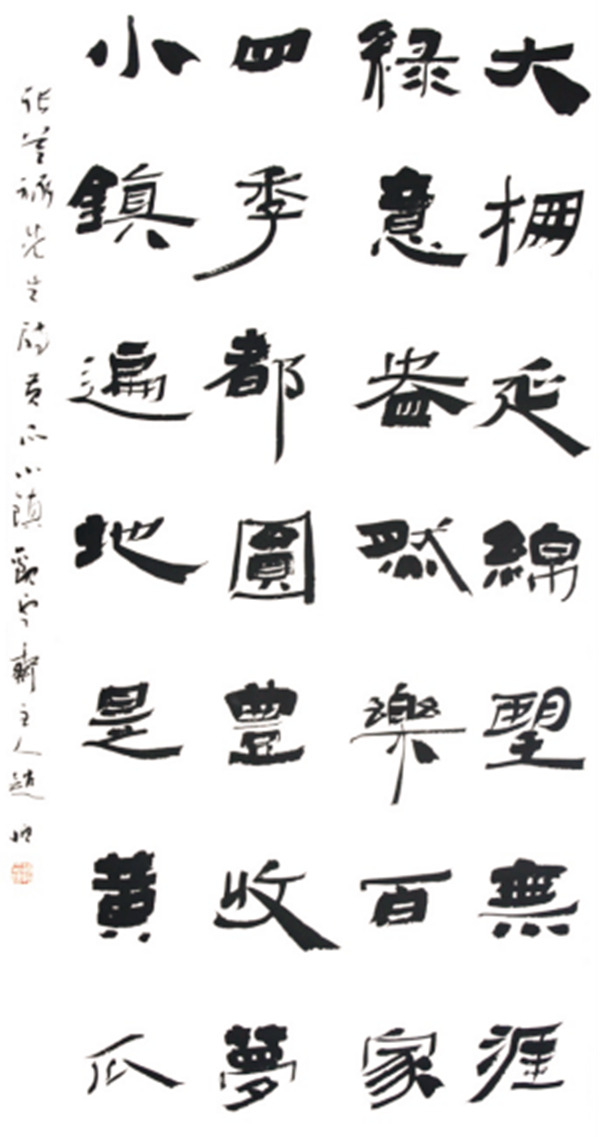 大棚延綿望無涯
綠意盎然樂百家
四季都圓豐收夢
小鎮遍地是黃瓜
先生詩黃瓜小鎮 齋主人趙